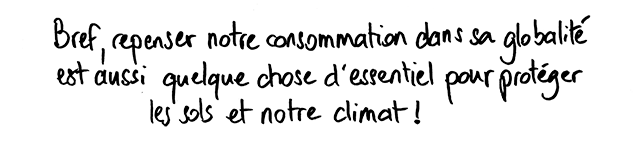 Bref, repenser notre consommation dans sa globalité
est aussi quelque chose d'essentiel pour protéger
les sols et notre climat !